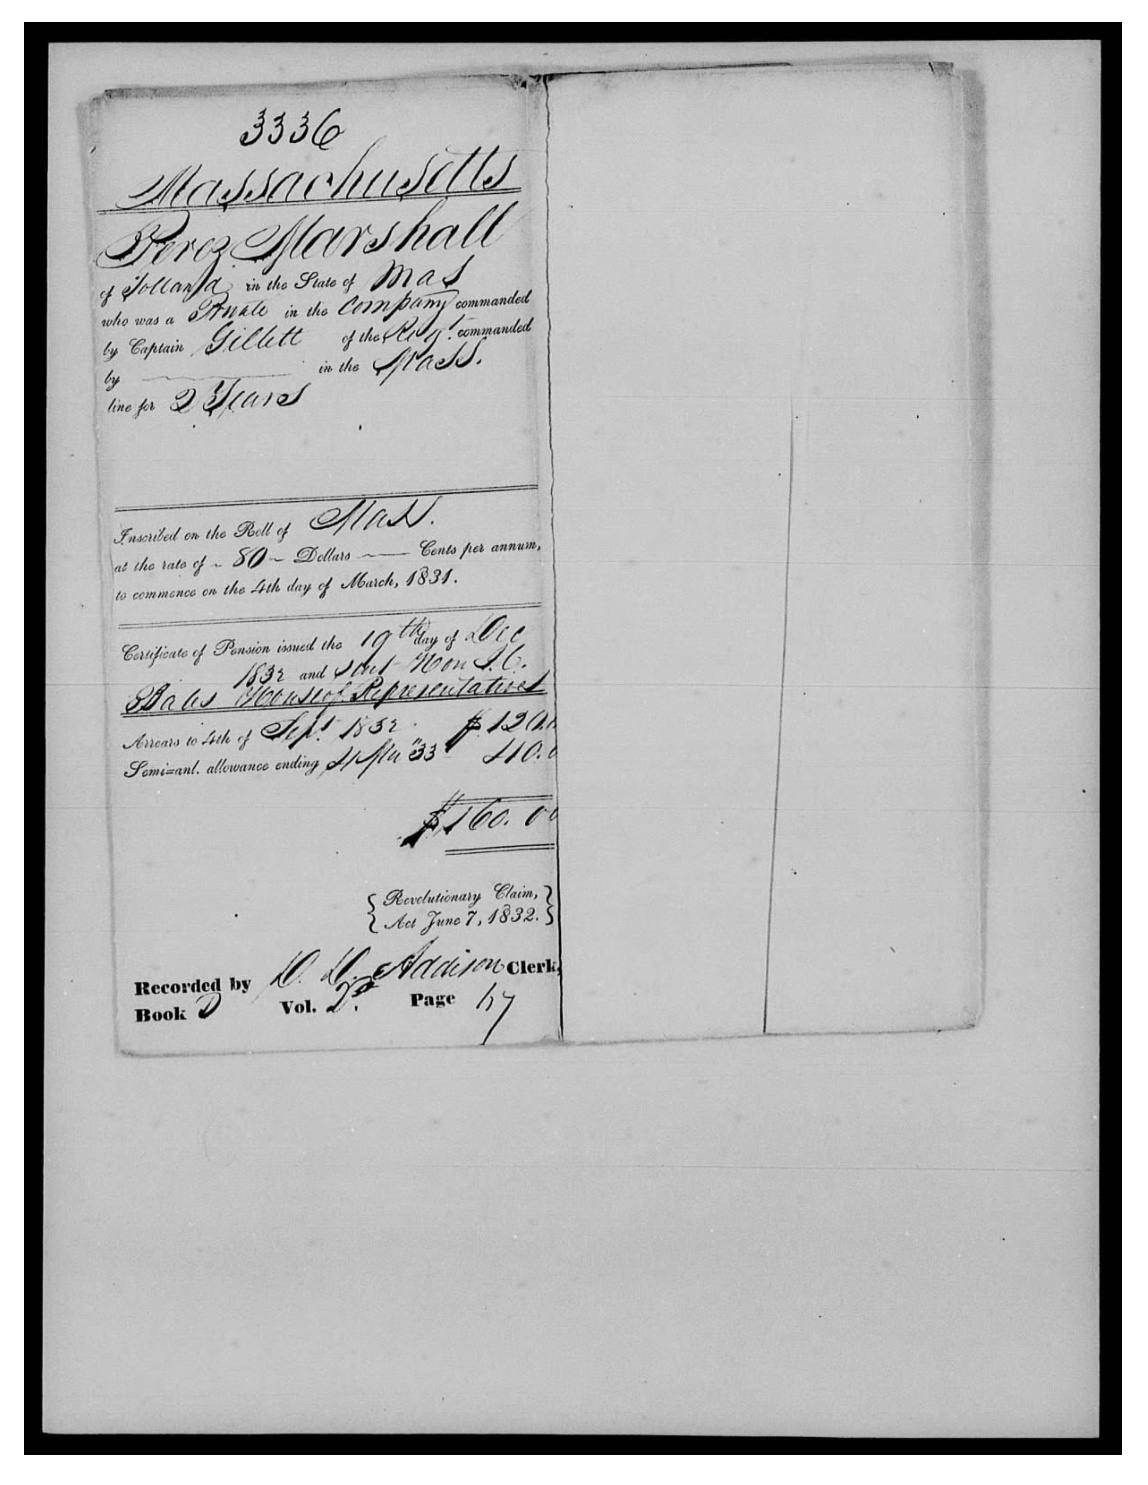 3336
Massachusetts
Peroz Marshall
of Tolland in the State of Mas
who was a Private in the Company commanded
by Captain Gillett of the Regt. commanded
by in the Mass.
line for 2 Years
Inscribed on the Roll of Mass.
at the rate of 80 Dollars Cents per annum,
to commence on the 4th day of March, 1831.
Certificate of Pension issued the 19th day of Dec
1832 and sent Hon I. C.
Bates House of Representatives
Arrears to 4th of Sept. 1832 $ 120.0
Semi-anl. allowance ending 4 Mar "33 40.0
$160.00
Revolutionary Claim,
Act June 7, 1832.
Recorded by D. D. Addison Clerk,
Book D Vol. 2. Page 47